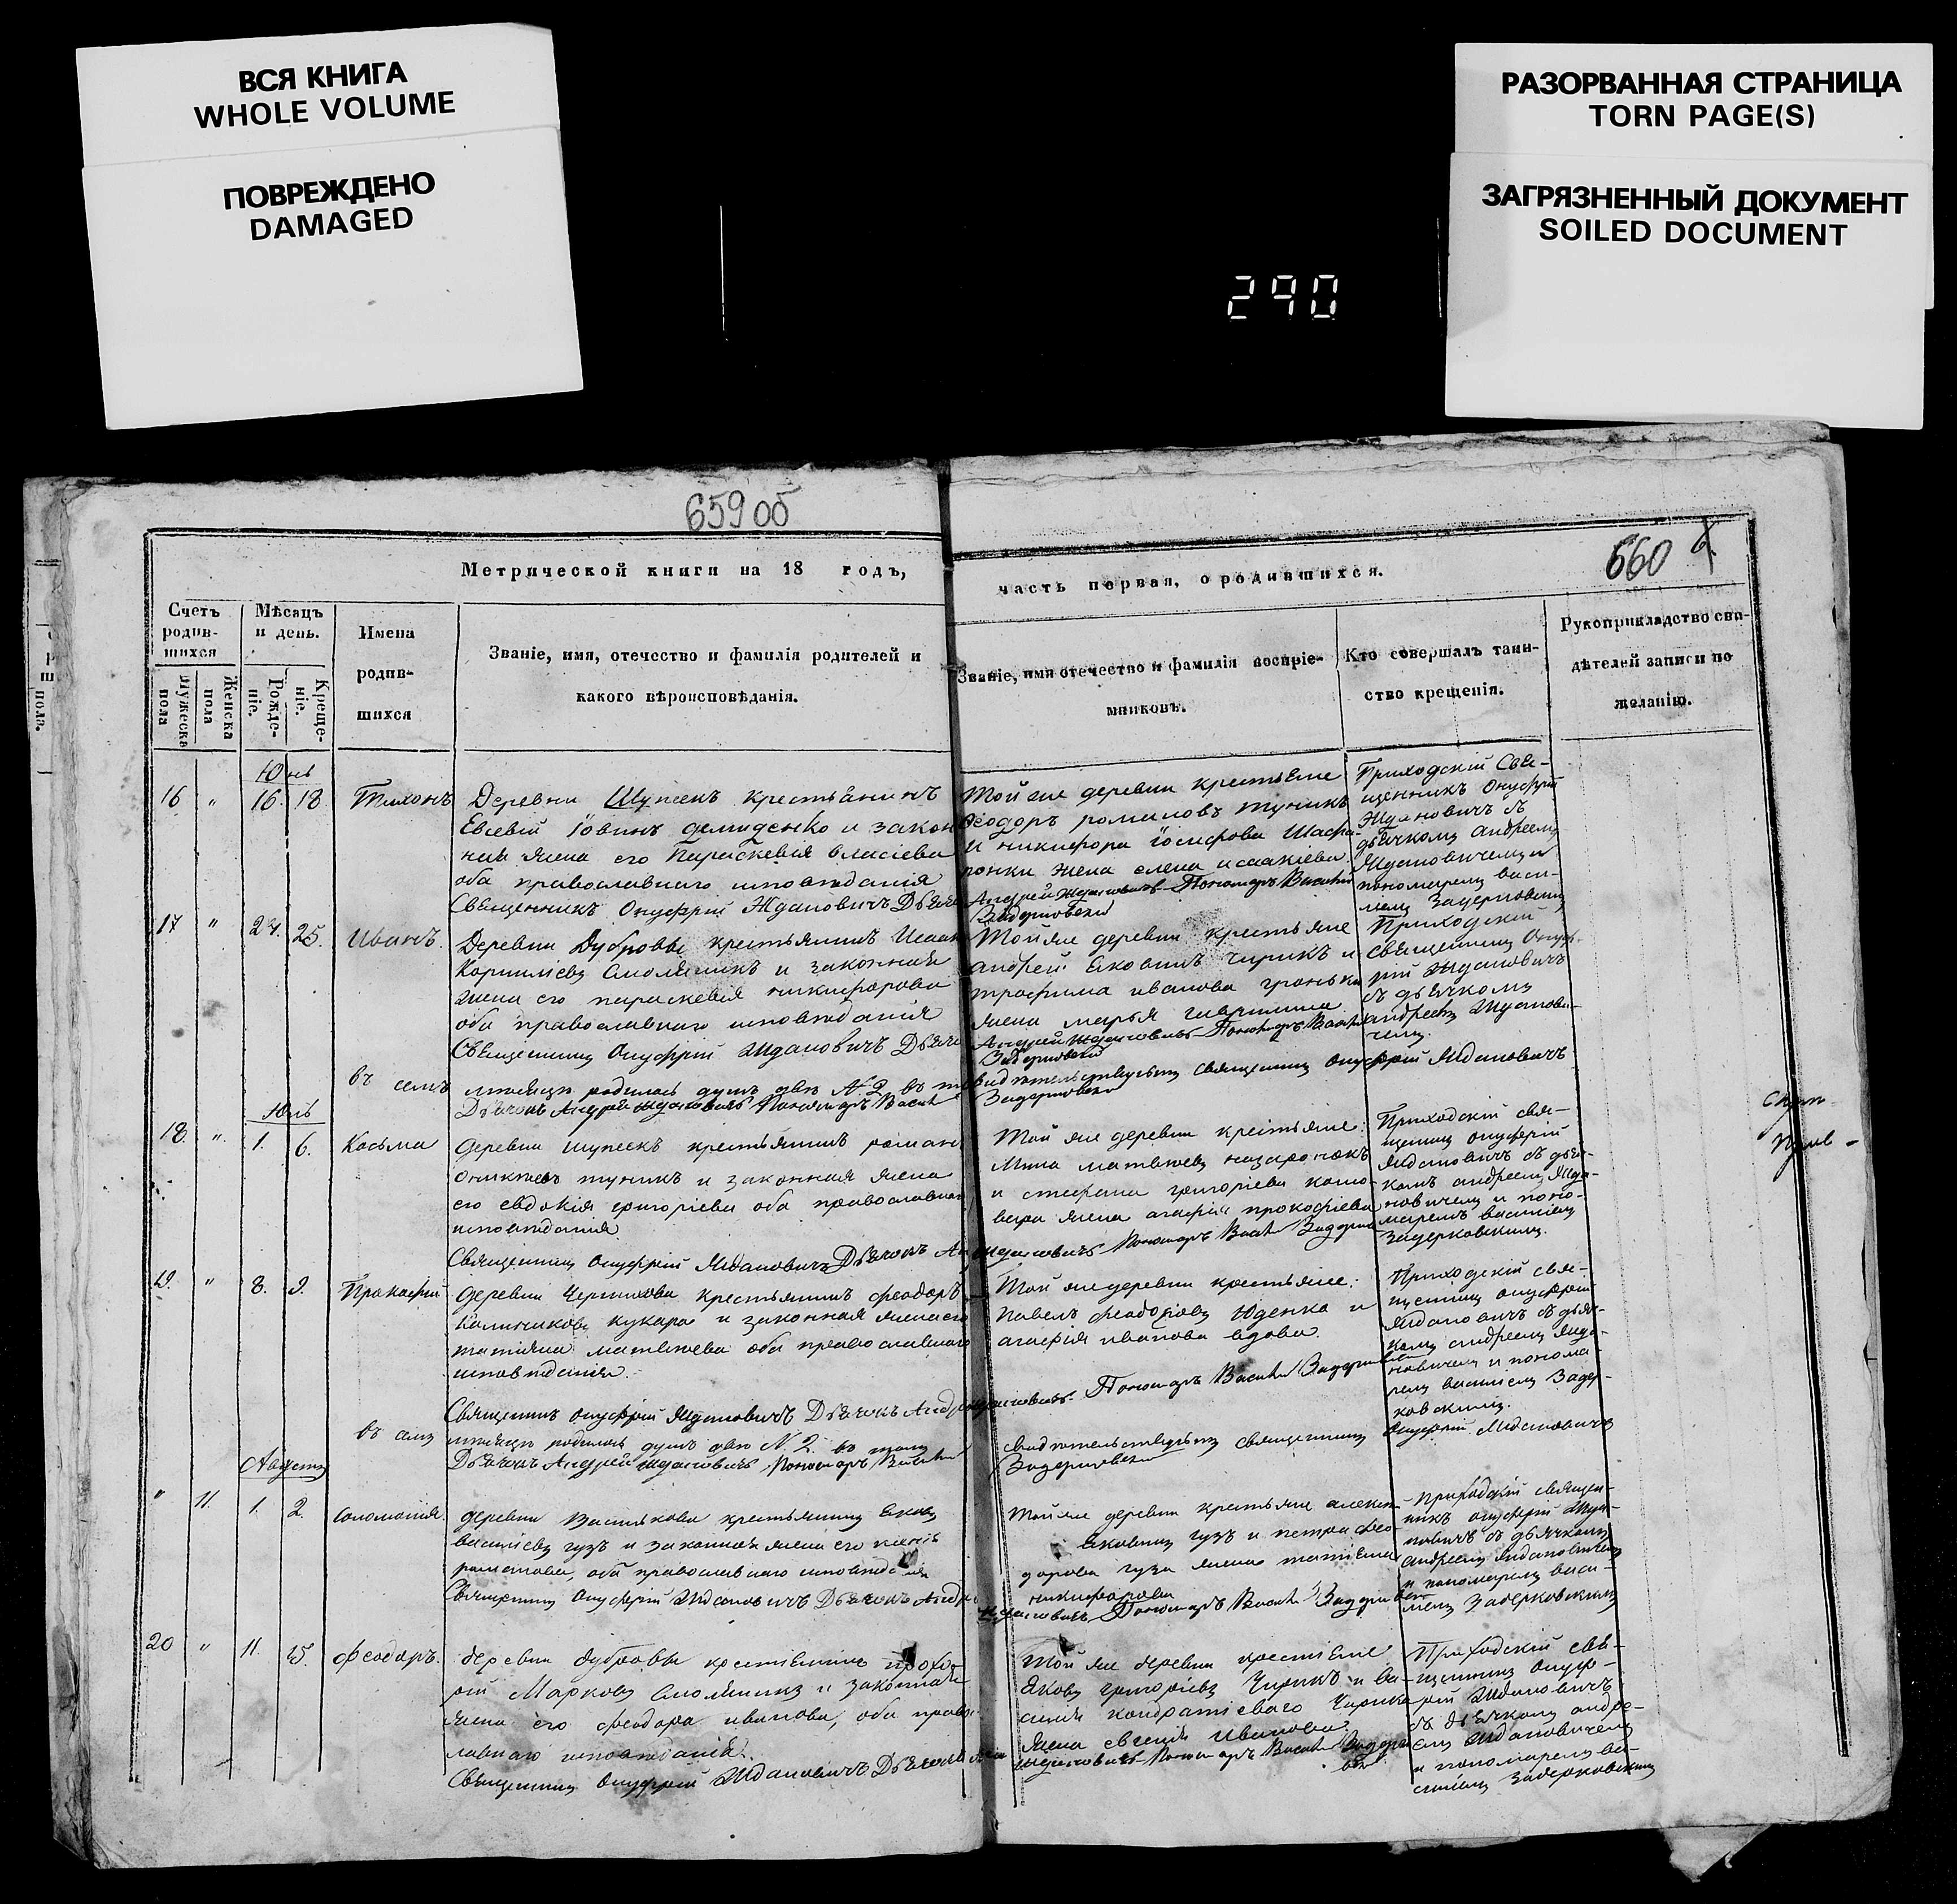 ВСЯ КНИГА
WHOLE VOLUME
ПОВРЕЖДЕНО
DAMAGED
РАЗОРВАННАЯ СТРАНИЦА
TORN PAGE(S)
ЗАГРЯЗНЕННЫЙ ДОКУМЕНТ
SOILED DOCUMENT
290
659об
Метрической книги на 18 годъ,
Счетъ родив-
шихся
Мужеска пола
Женска пола
Мѣсяцъ
и день.
Рожде-
ніе.
Креще-
ніе.
Имена
родив-
шихся
Званіе, имя, отечество и фамилія родителей и
какого вѣроисповѣданія.
660
часть первая, о родившихся.
Званіе, имя отечество и фамилія воспріе-
мниковъ.
Кто совершалъ таин-
ство крещенія.
Рукоприкладство сви-
дѣтелей записи по
желанію.
Юнь
16 " 16. 18. Тихонъ
Деревни Шупеекъ крестьянинъ
Евсевій Іовинъ демиденко и закон
ная жена его Параскевія власіева
оба православнаго исповѣданія
Священникъ Онуфрій Ждановичъ Дьячо
Той же деревни крестьяне
Ѳеодоръ романовъ туникъ
и никифора іосифова Шафа-
ронки жена елена исаакіева.
Андрей Ждановичъ Пономарь Васили
Приходскій Свя-
щенникъ Онуфрій
Ждановичъ съ
дьячкомъ андреемъ
Ждановичемъ и
пономаремъ васи-
17 " 24. 25. Иванъ.
Деревни Дубровы крестьянинъ Исаак
Корниліевъ Смоляникъ и законная
жена его параскевія никифорова
оба православнаго исповѣданія
Священникъ Онуфрій Ждановичъ Дьячо
Той же деревни крестьяне
андрей Яковинъ чирикъ и
трофима иванова гроньки
жена марья гаврилина
Андрей Ждановичъ Пономарь Васили
Приходскій
священникъ Онуф-
рій Ждановичъ
съ дьячкомъ
андреемъ Жданови-
чемъ.
въ семъ мѣсяцѣ родилось душъ двѣ № 2 въ томъ свидѣтельствуемъ священникъ онуфрій Ждановичъ
Дьячокъ Андрей Ждановичъ Пономарь Васили
Юль
18. ". 1. 6. Косьма
деревни шупеекъ крестьянинъ роман
туникъ и законная жена
его евдокія григоріева оба православнаг
исповѣданія
Священникъ Онуфрій Ждановичъ Дьячокъ Ан
Той же деревни крестьяне:
Мина матвѣевъ назаронокъ
и стефана григоріева коно-
вара жена агафія прокофіева
Ждановичъ Пономарь Васили
Приходскій свя-
щенникъ онуфрій
Ждановичъ съ дья-
комъ андреемъ Жда-
новичемъ и поно-
маремъ василіемъ
Задерковскимъ.
19. " 8. 9. Прокофій
деревни Черникова крестьянинъ феодоръ
Калинникова кукара и законная жена его
татіяна матвѣева оба православнаго
исповѣданія.
Священникъ онуфрій Ждановичъ Дьячокъ Андр
Той же деревни крестьяне:
Павелъ феодоровъ Юденка и
агафія иванова вдова.
Ждановичъ Пономарь Васили
Приходскій свя-
щенникъ онуфрій
Ждановичъ съ дьяч-
комъ андреемъ Жда-
новичемъ и понома-
ремъ василіемъ Задер-
ковскимъ.
въ семъ мѣсяцѣ родилось душъ двѣ № 2. въ томъ
свидѣтельствуемъ священникъ Онуфрій Ждановичъ
Дьячокъ Андрей Ждановичъ Пономарь Васили
Августъ
" 11. 1. 2. соломонія.
деревни Василькова крестьянинъ Яковъ
василіевъ гузъ и законная жена его
романова, оба православнаго исповѣданія
Священникъ Онуфрій Ждановичъ Дьячокъ Андр
Той же деревни крестьяне алекси
Яковинъ гузъ и петра фео-
дорова гуза жена татіяна
никифорова
Ждановичъ Пономарь Васили
Приходскій священ-
никъ онуфрій Жда-
новичъ съ дьячкомъ
андреемъ Ждановичемъ
и пономаремъ васи-
ліемъ Задерковскимъ
20 " 11. 15. феодоръ.
деревни дубровы крестьянинъ прохо-
рій Марковъ Смолянинъ и законная
жена его феодора иванова, оба право-
славнаго исповѣданія.
Священникъ Онуфрій Ждановичъ Дьячокъ
Той же деревни крестьяне
Яковъ григоріевъ Чирикъ и ва-
силія кондратіеваго Чирика
жена евгенія Иванова.
Ждановичъ Пономарь Васили
Приходскій свя-
щенникъ онуф-
рій Ждановичъ
съ дьячкомъ андре-
емъ Ждановичемъ
и пономаремъ ва-
силіемъ Задерковскимъ